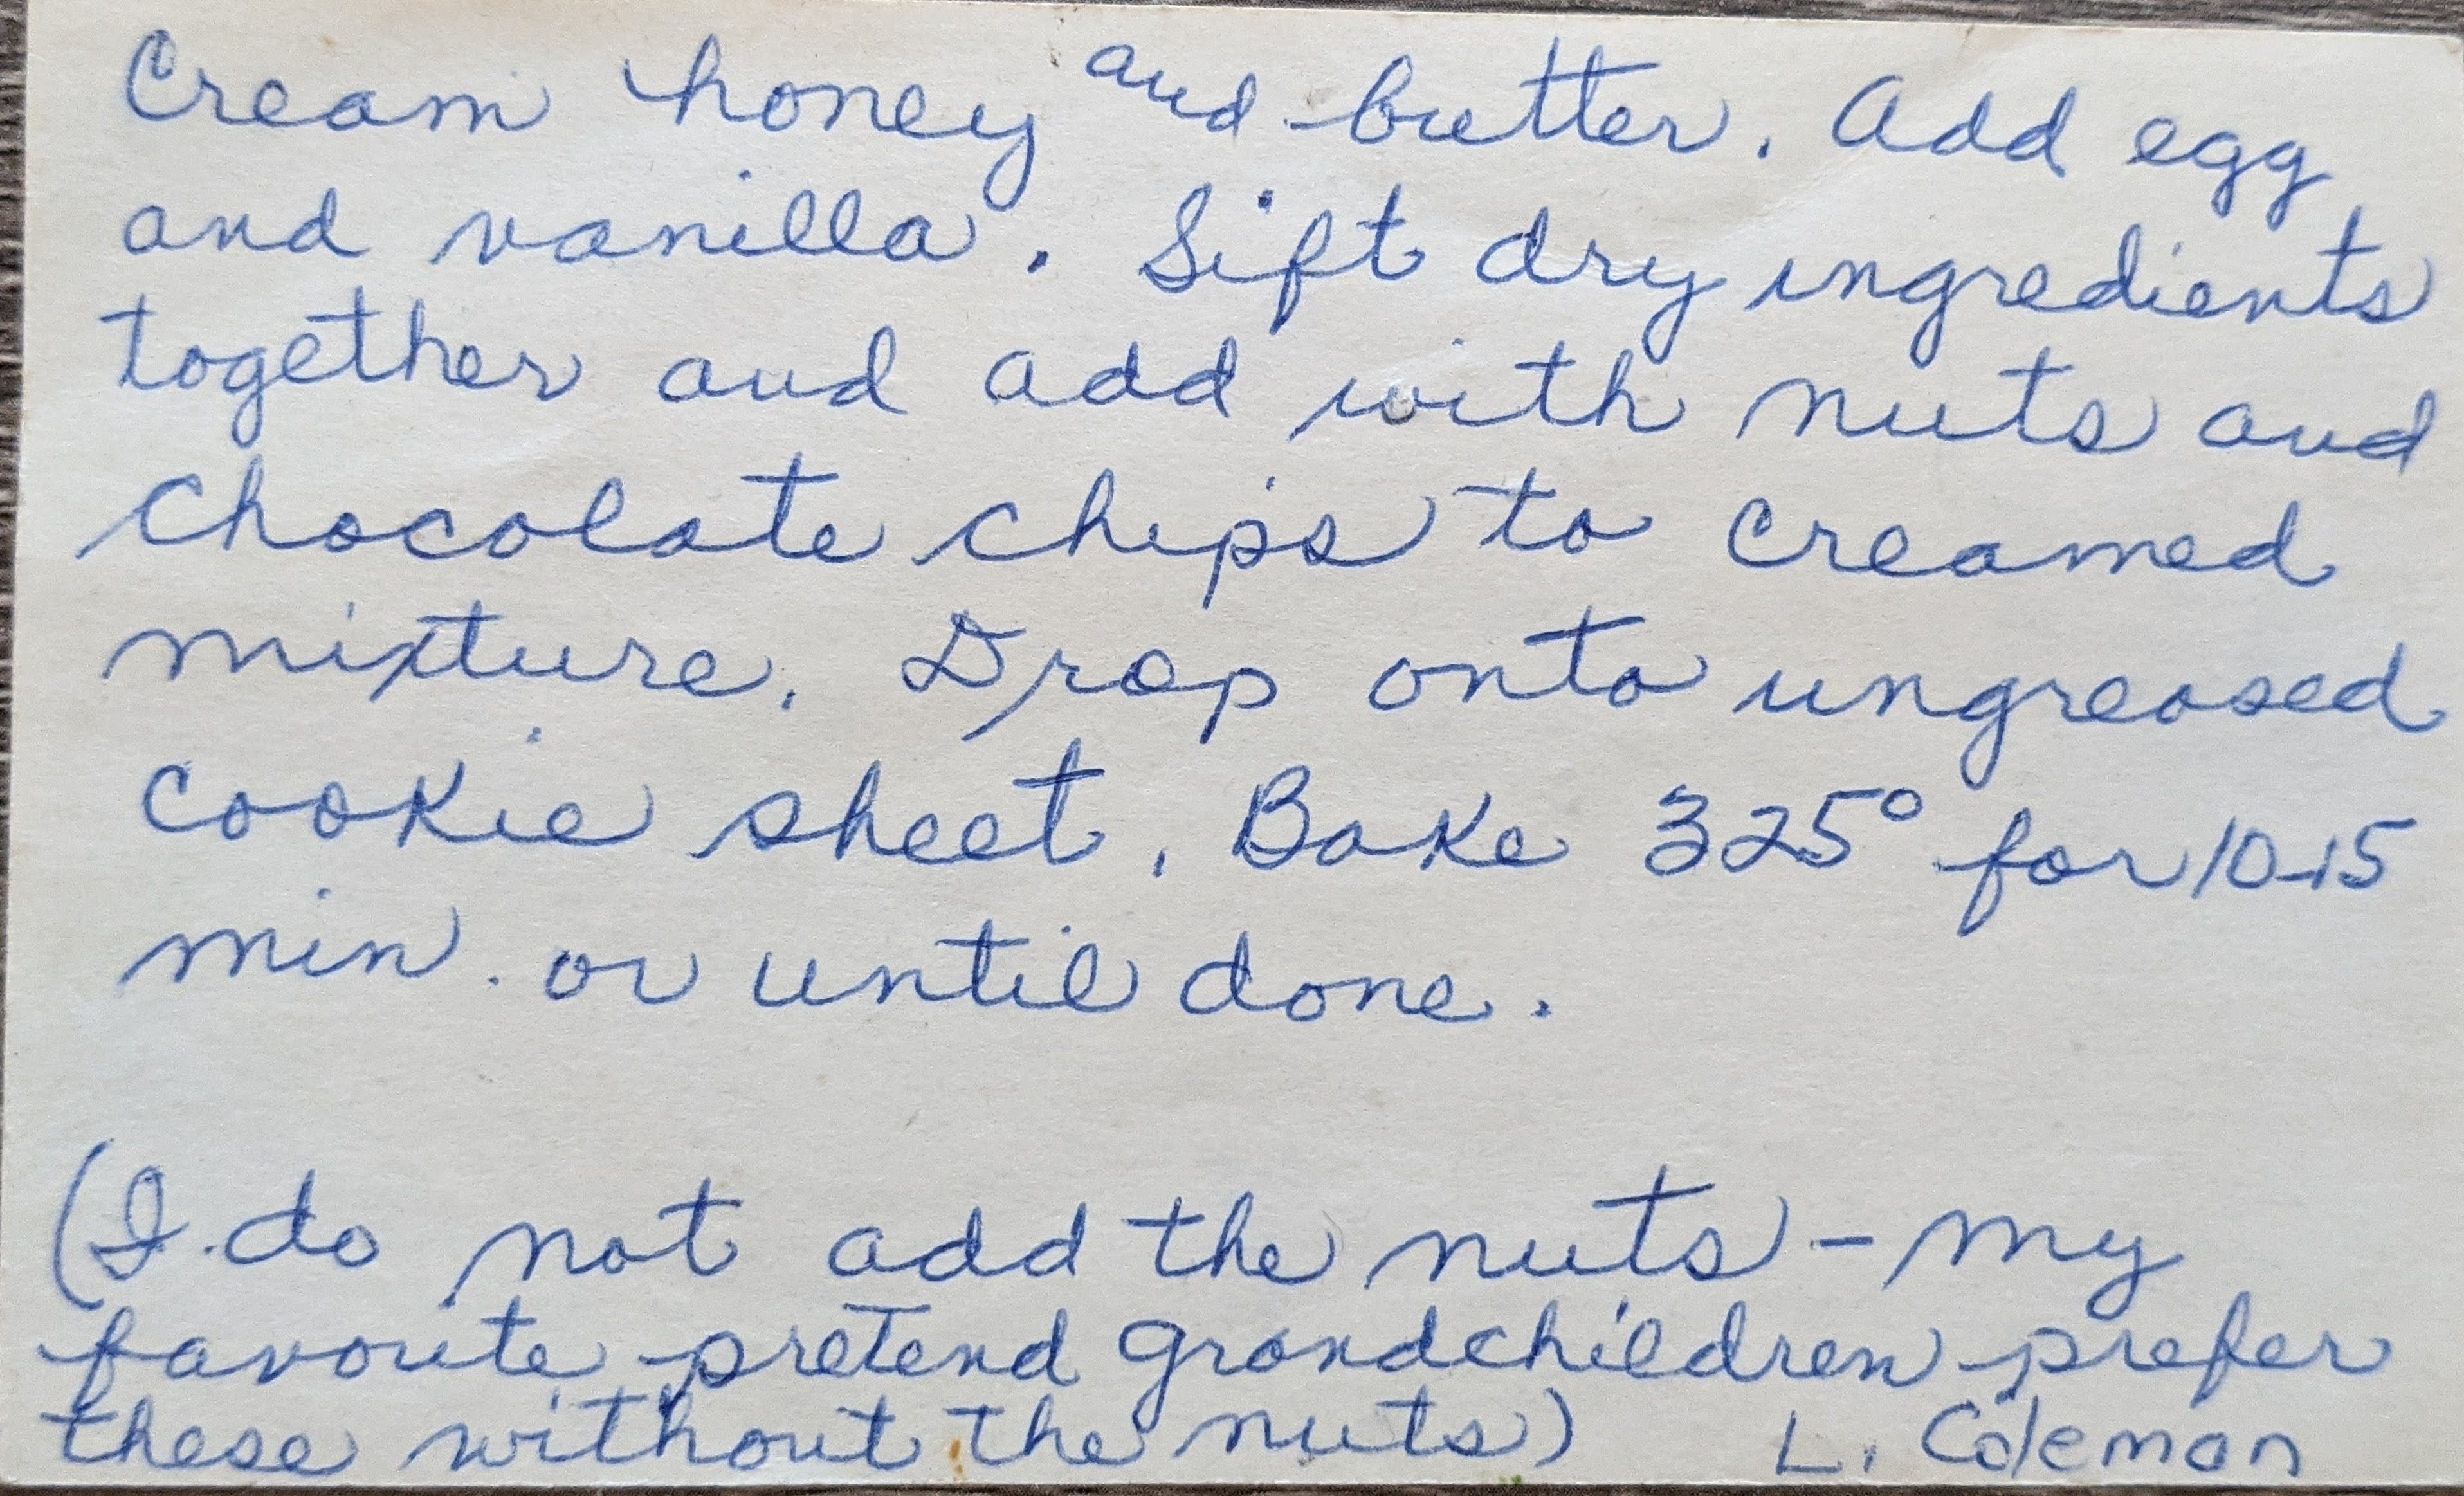 Cream honey and butter. Add egg
and vanilla. Sift dry ingredients
together and add with nuts and
chocolate chips to creamed
mixture. Drop onto ungreased
cookie sheet. Bake 325° for 10-15
min. or until done.
(I do not add the nuts - my
favorite pretend grandchildren prefer
these without the nuts) L. Coleman